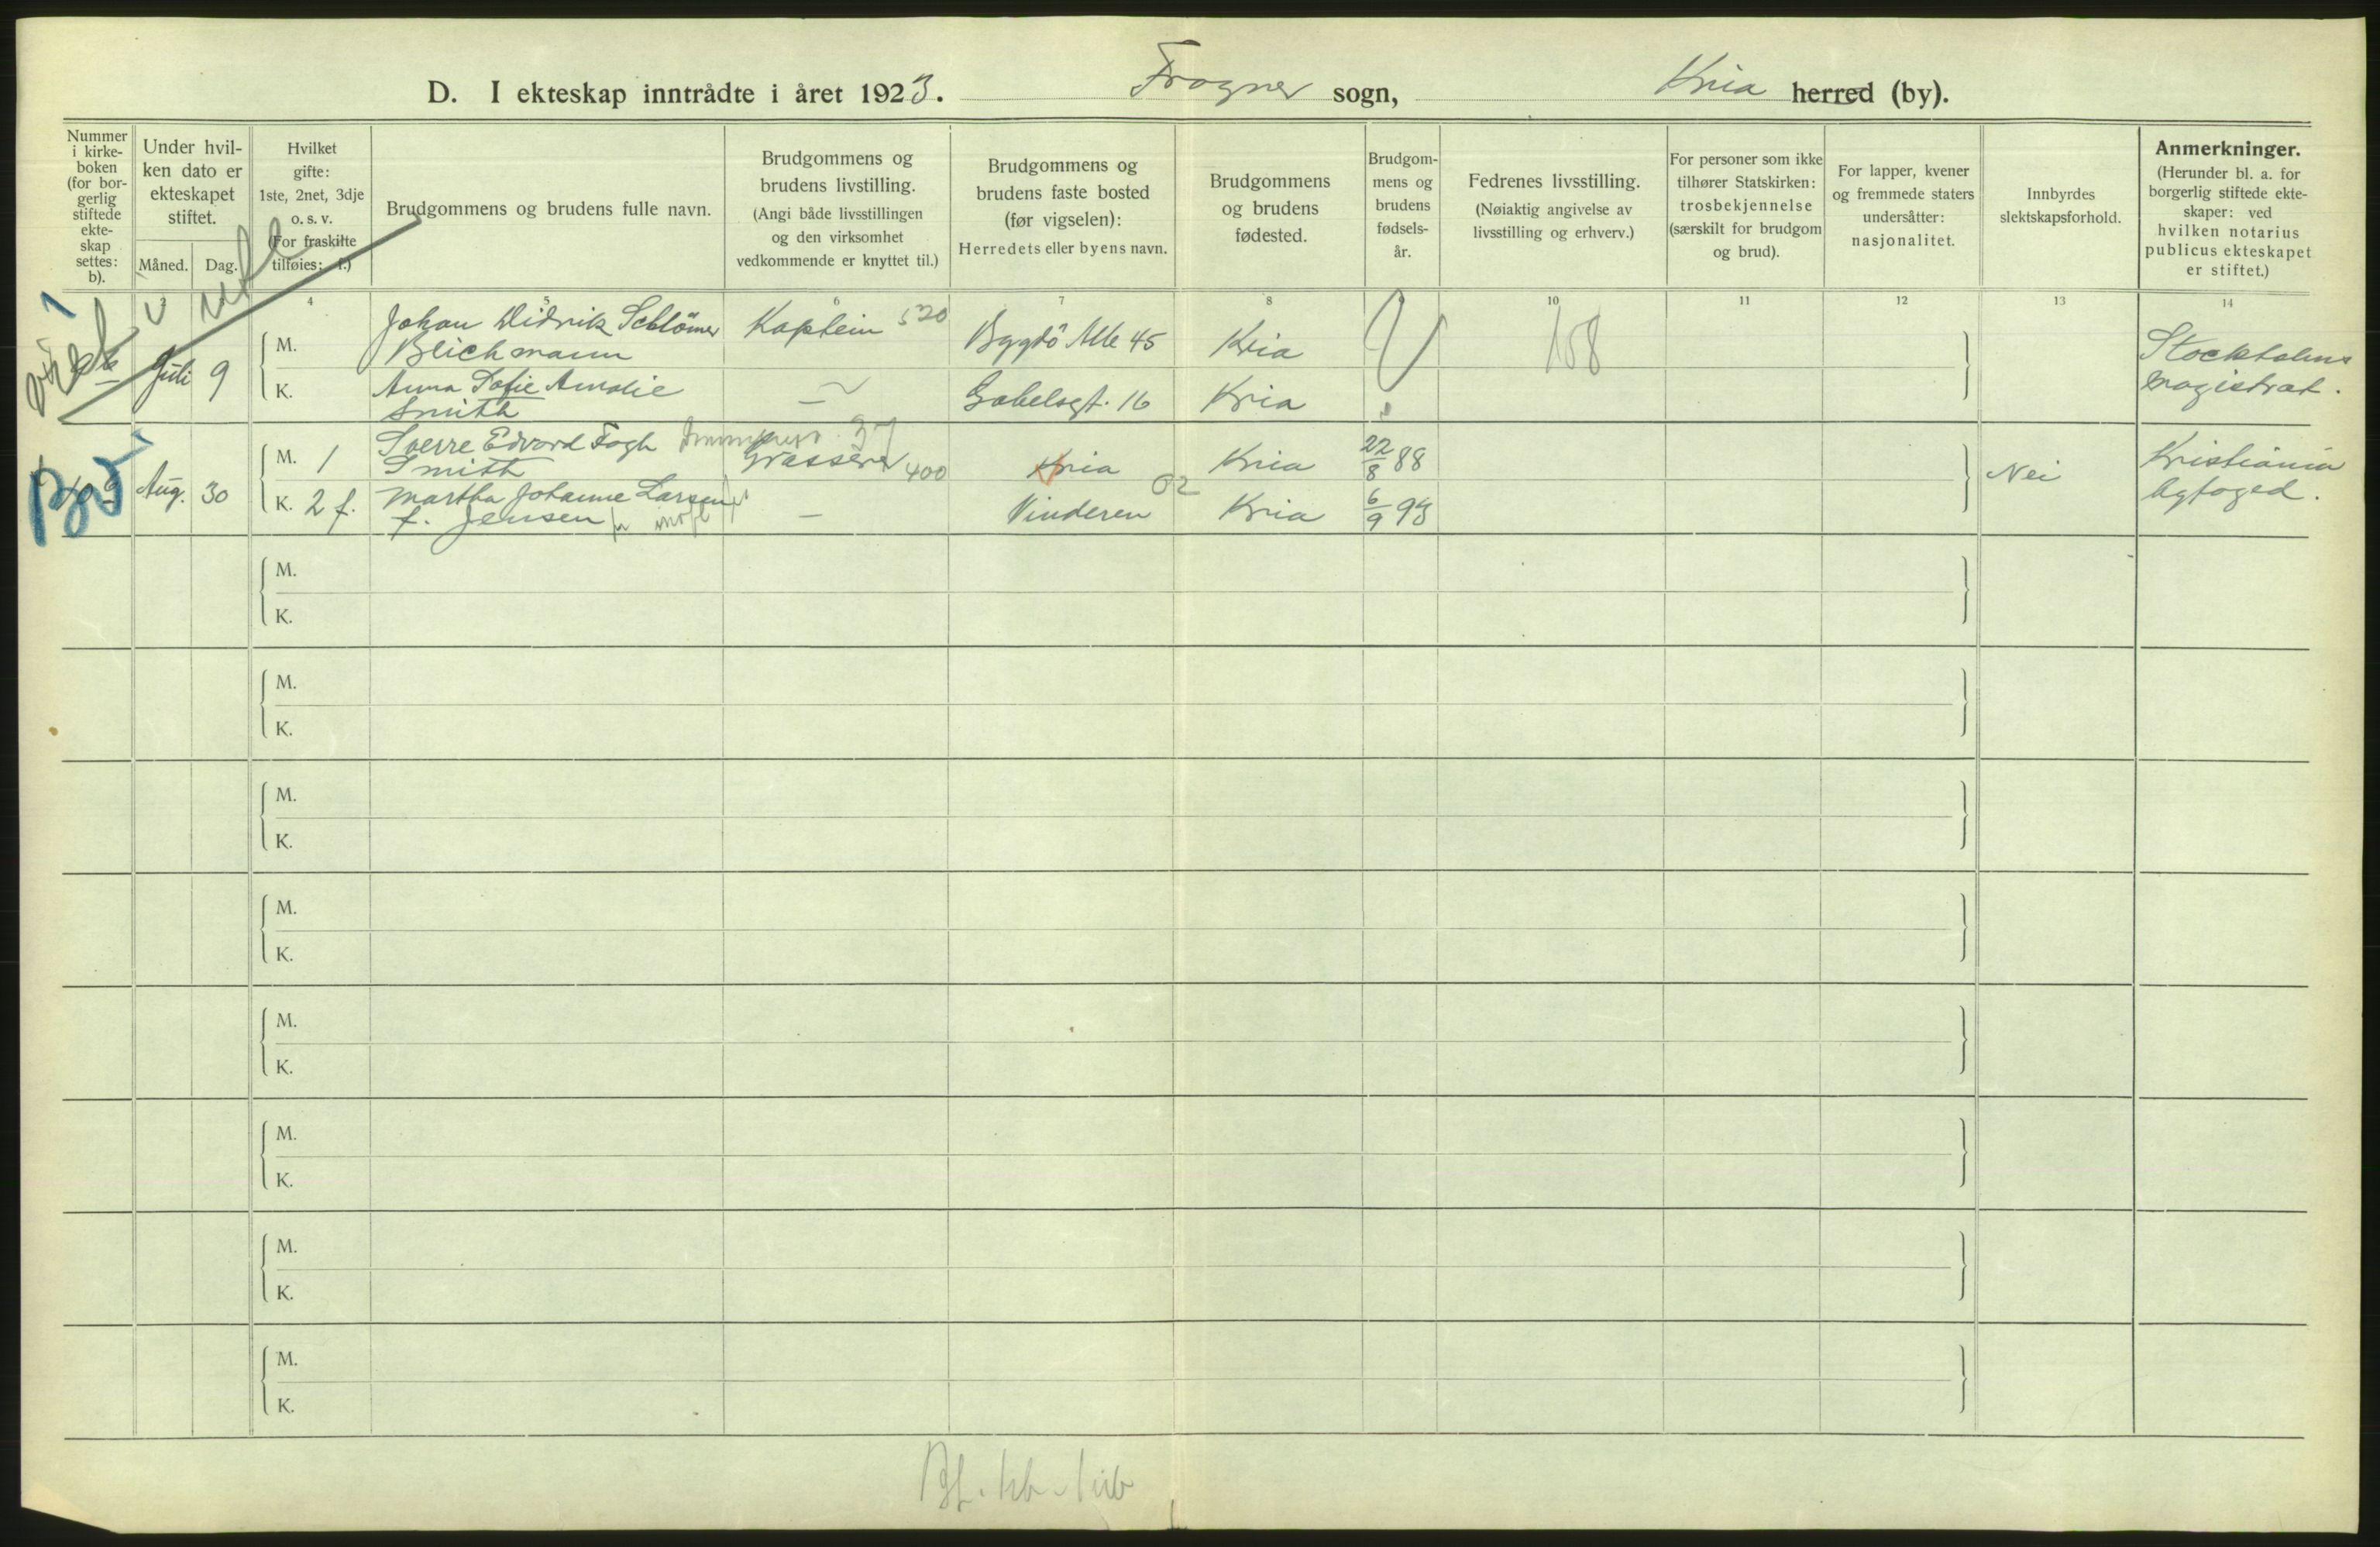 D. I ekteskap inntrådte i året 1923. Frogner sogn, Kria herred (by).
Nummer
i kirke-
boken
(for bor-
gerlig
stiftede
ekte-
skap
settes:
b).
Under hvil-
ken dato er
ekteskapet
stiftet.
Måned.
Dag.
Hvilket
gifte:
1ste, 2net, 3dje
o. s. v.
(For fraskilte
tilføies: f.)
Brudgommens og brudens fulle navn.
Brudgommens og
brudens livstilling.
(Angi både livsstillingen
og den virksomhet
vedkommende er knyttet til.)
Brudgommens og
brudens faste bosted
(før vigselen):
Herredets eller byens navn.
Brudgommens
og brudens
fødested.
Brudgom-
mens og
brudens
fødsels-
år.
Fedrenes livsstilling.
(Nøiaktig angivelse av
livsstilling og erhverv.)
For personer som ikke
tilhører Statskirken:
trosbekjennelse
(særskilt for brudgom
og brud).
For lapper, kvener
og fremmede staters
undersåtter:
nasjonalitet.
Innbyrdes
slektskapsforhold.
Anmerkninger.
(Herunder bl. a. for
borgerlig stiftede ekte-
skaper: ved
hvilken notarius
publicus ekteskapet
er stiftet.)
4 5 6 7 8 10 11 12 13 14
viet i utl
1
Juli 9
M. Johan Didrik Schlömer Kaptein 520 Bygdö Alle 45 Kria 158 Stockholms
Blichmann
K. Anna Sofie Amalie — Gabelsgt. 16 Kria magistrat.
Smith
Aug. 30
M. 1 Sverre Edvard Fogh 37 Grosserer 400 Kria Kria 22/8 88 Nei Kristiania
Smith
K. 2 f. Martha Johanne Larsen — Vinderen 02 Kria 6/9 93 byfoged.
f. Jensen
M.
K.
M.
K.
M.
K.
M.
K.
M.
K.
M.
K.
M.
K.
M.
K.